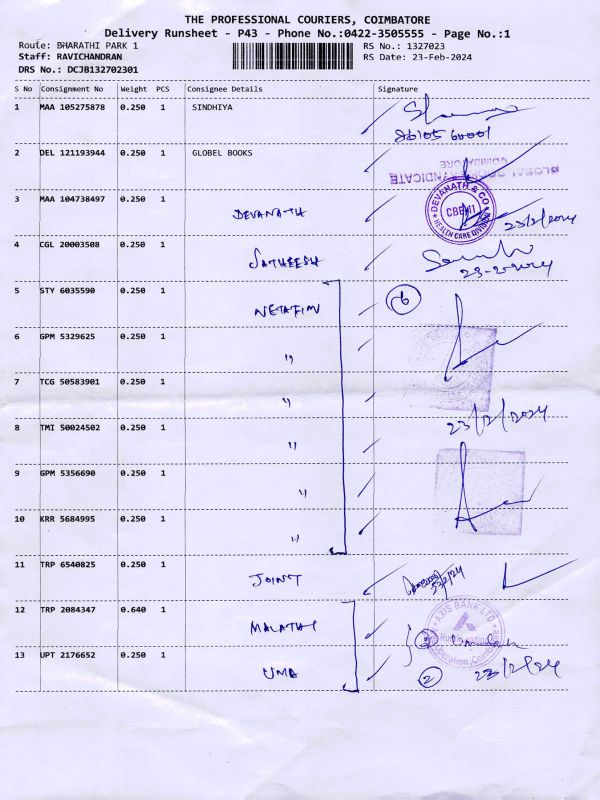 THE PROFESSIONAL COURIERS, COIMBATORE
Delivery Runsheet - P43 - Phone No.:0422-3505555 - Page No.:1
Route: BHARATHI PARK 1
RS No.: 1327023
Staff: RAVICHANDRAN
RS Date: 23-Feb-2024
DRS No.: DCJB132702301
S No Consignment No Weight PCS Consignee Details Signature
1 MAA 105275878 0.250 1 SINDHIYA
2 DEL 121193944 0.250 1 GLOBEL BOOKS
COIMBATORE
3 MAA 104738497 0.250 1 DEVANATH
DEVANATH & CO
HEALTH CARE DIVISION
23/2/2024
4 CGL 20003508 0.250 1 SATHEESH
23-2-2024
5 STY 6035590 0.250 1 NETAFIM 6
6 GPM 5329625 0.250 1 "
7 TCG 50583901 0.250 1 "
23/2/2024
8 TMI 50024502 0.250 1 "
9 GPM 5356690 0.250 1 "
10 KRR 5684995 0.250 1 "
11 TRP 6540825 0.250 1 JOINT
12 TRP 2084347 0.640 1 MALATHI
AXIS BANK LTD
13 UPT 2176652 0.250 1 UMA
2
23/2/24